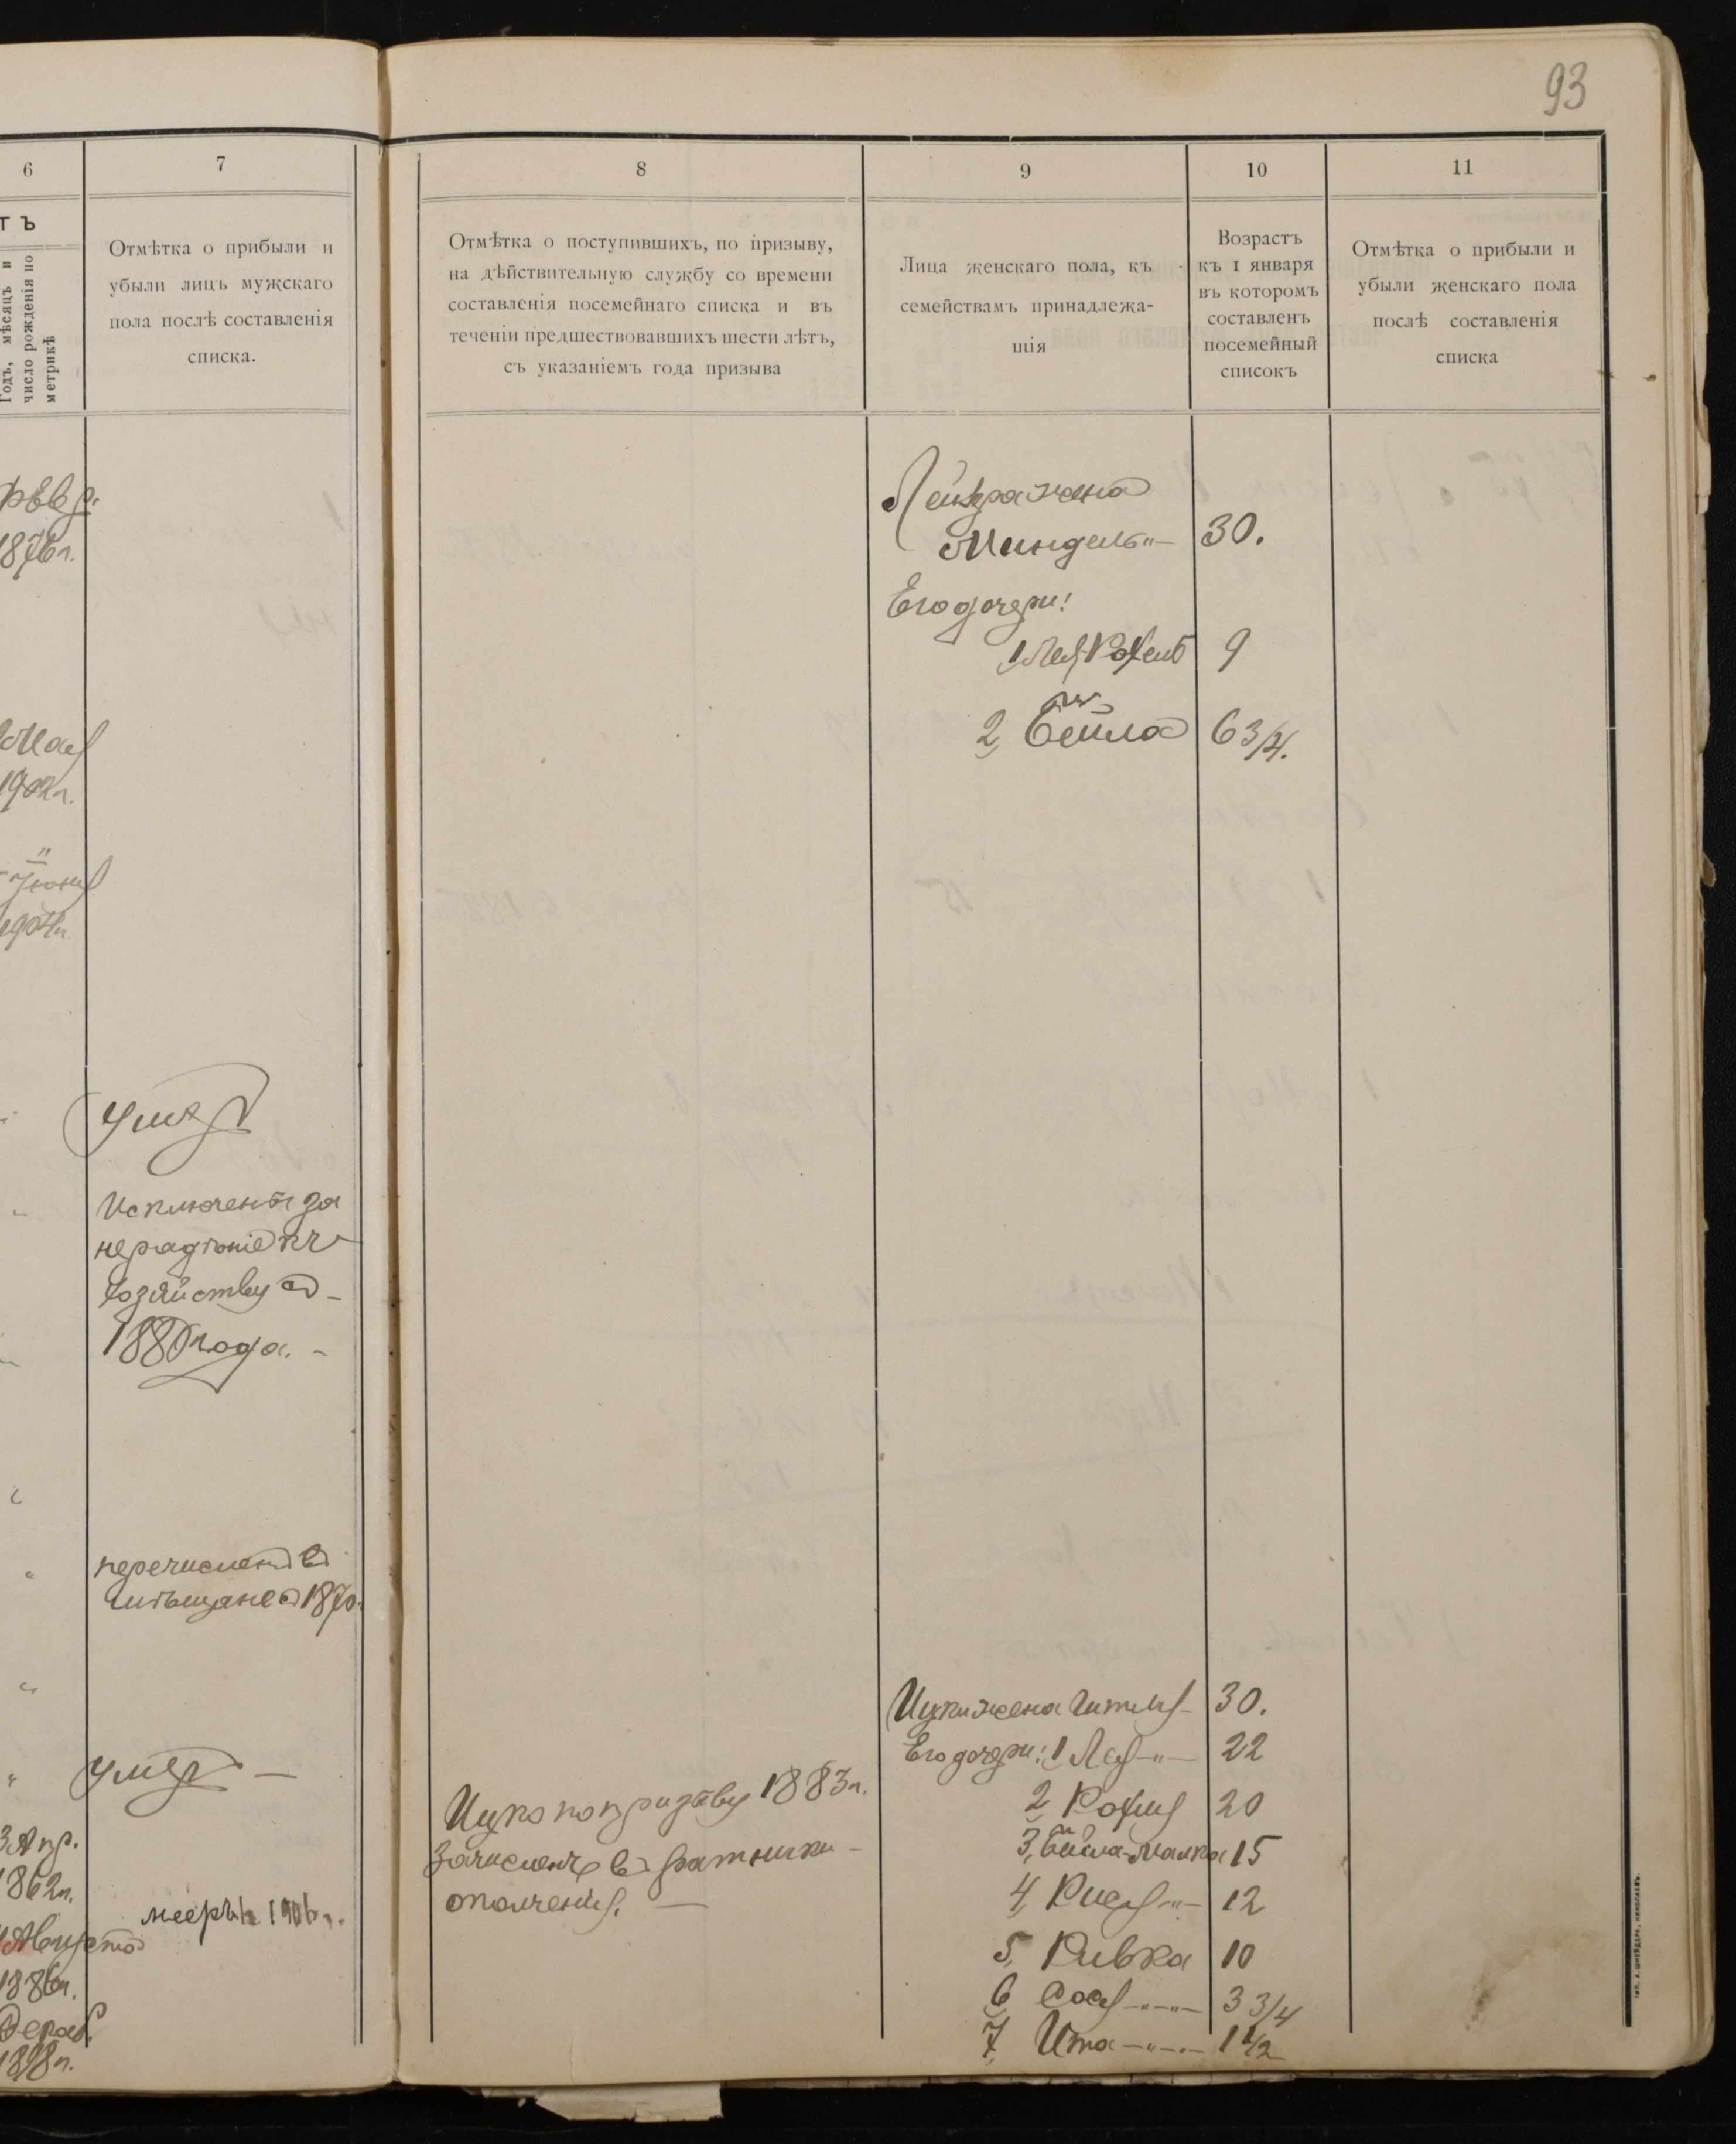 93
6
7
8
9
10
11
ТЪ
Годъ, мѣсяцъ и
число рожденія по
метрикѣ
Отмѣтка о прибыли и
убыли лицъ мужскаго
пола послѣ составленія
списка.
Отмѣтка о поступившихъ, по призыву,
на дѣйствительную службу со времени
составленія посемейнаго списка и въ
теченіи предшествовавшихъ шести лѣтъ,
съ указаніемъ года призыва
Лица женскаго пола, къ
семействамъ принадлежа-
щія
Возрастъ
къ 1 января
въ которомъ
составленъ
посемейный
списокъ
Отмѣтка о прибыли и
убыли женскаго пола
послѣ составленія
списка
февр.
1876г.
Мая
1902г.
Іюня
1904г.
Умеръ
Исключенъ за
нерадѣніе къ
хозяйству съ
1880 года.
перечисленъ въ
мѣщане съ 1870.
Умеръ
3 Апр.
1862г.
Августа
1886г.
Декаб.
1898г.
1906г.
Ицко по призыву 1883г.
зачисленъ въ ратники
ополченія.
Лейзера жена
Миндель 30.
Его дочери:
1, Лея Рохель 9
2, Бейла 6 3/4.
Ицки жена Гитля 30.
Его дочери: 1 Лея 22
2, Рохля 20
3, Бейла-Малка 15
4, Рися 12
5, Ривка 10
6, Сося 3 3/4
7, Ита 1 1/2